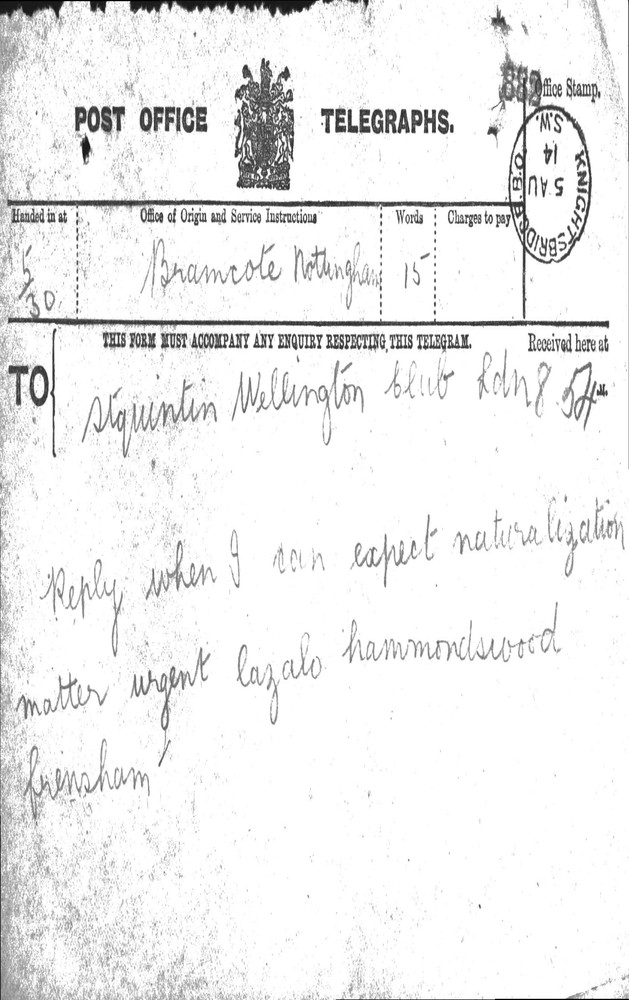 882
Office Stamp.
POST OFFICE TELEGRAPHS.
KNIGHTSBRIDGE.B.O.
S.W.
5 AU
14
Handed in at
Office of Origin and Service Instructions
Words
Charges to pay
5/30.
Bramcote Nottingham
15
THIS FORM MUST ACCOMPANY ANY ENQUIRY RESPECTING THIS TELEGRAM.
Received here at
TO
Stquintin Wellington Club Ldn 8 54 M.
Reply when I can expect naturalization
matter urgent lazalo hammondswood
frensham